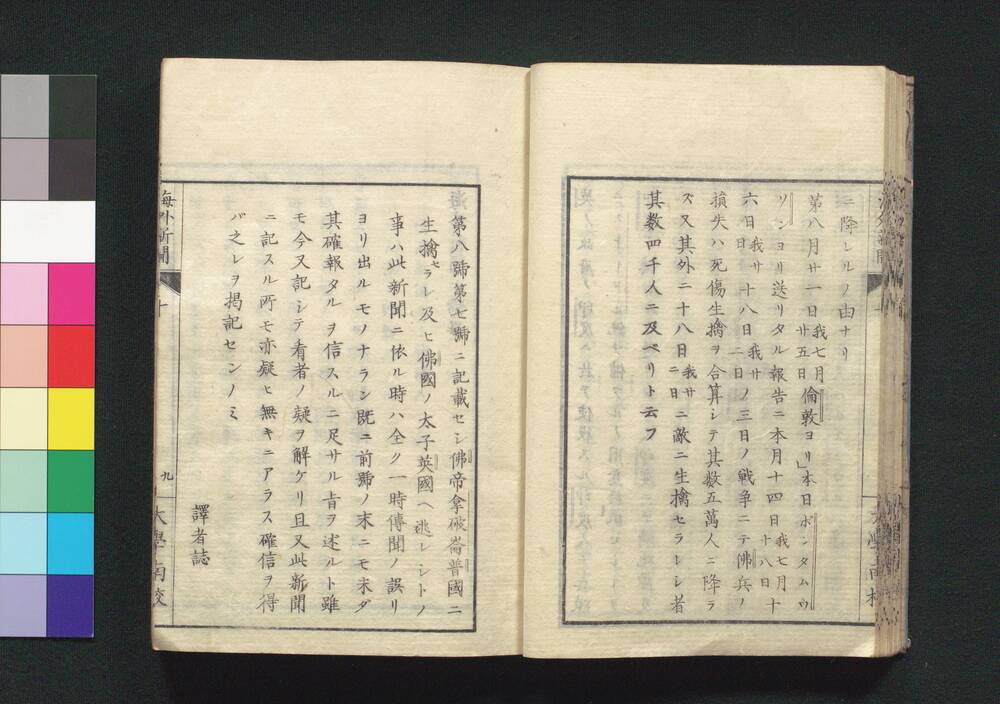 ニ降レルノ由ナリ
第八月廿一日我七月廿五日倫敦ヨリ」本日ボンタムウ
ソンヨリ送リタル報告ニ本月十四日我七月十八日十
六日我廿日十八日我廿二日ノ三日ノ戦争ニテ佛兵ノ
損失ハ死傷生擒ヲ合算シテ其数五萬人ニ降ラ
ズ又其外二十八日我廿二日ニ敵ニ生擒セラレシ者
其数四千人ニ及ベリト云フ
第八號第七號ニ記載セシ佛帝拿破崙普國ニ
生擒セラレ及ヒ佛國ノ太子英國ヘ逃レシトノ
事ハ此新聞ニ依ル時ハ全ク一時傳聞ノ誤リ
ヨリ出ルモノナラン既ニ前號ノ末ニモ未ダ
其確報タルヲ信スルニ足サル旨ヲ述ルト雖
モ今又記シテ看者ノ疑ヲ解ケリ且又此新聞
ニ記スル所モ亦疑ヒ無キニアラス確信ヲ得
バ之レヲ掲記センノミ
譯者誌
海外新聞
十
九
大學南校